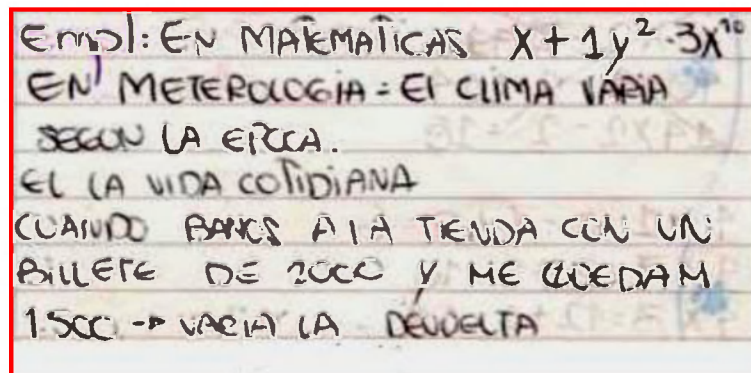 Empl: EN MATEMATICAS X + 1y² · 3x¹⁰
EN METEROLOGIA = El CLIMA VARIA
SEGUN LA EPOCA.
EL LA VIDA COTIDIANA
CUANDO BAMOS A LA TIENDA CON UN
BILLETE DE 2000 Y ME QUEDAM
1.500 → VARIA LA DEVUELTA